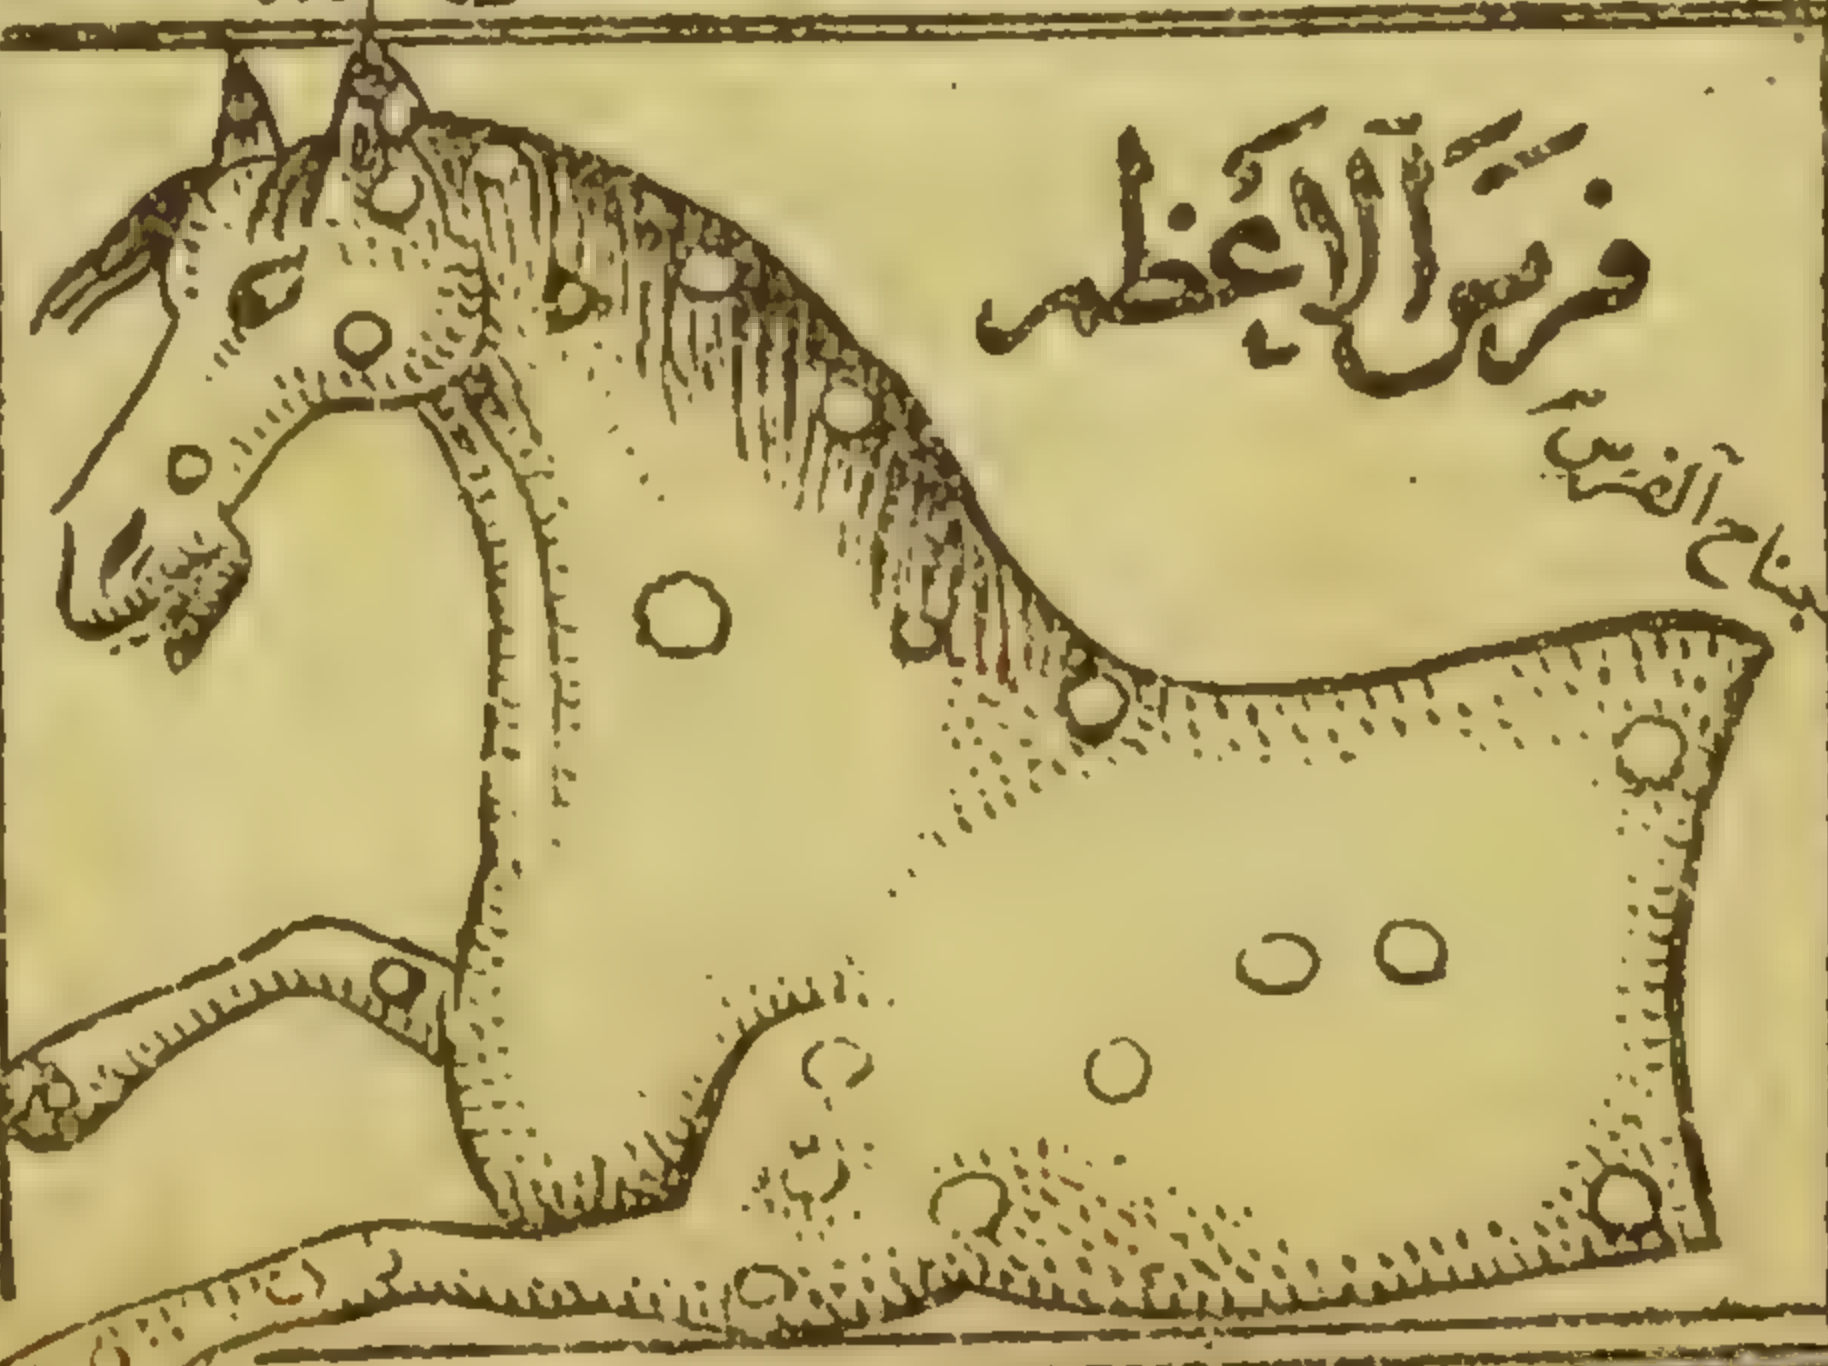 فَرَسُ الْأَعْظَمِ
جناح الفرس